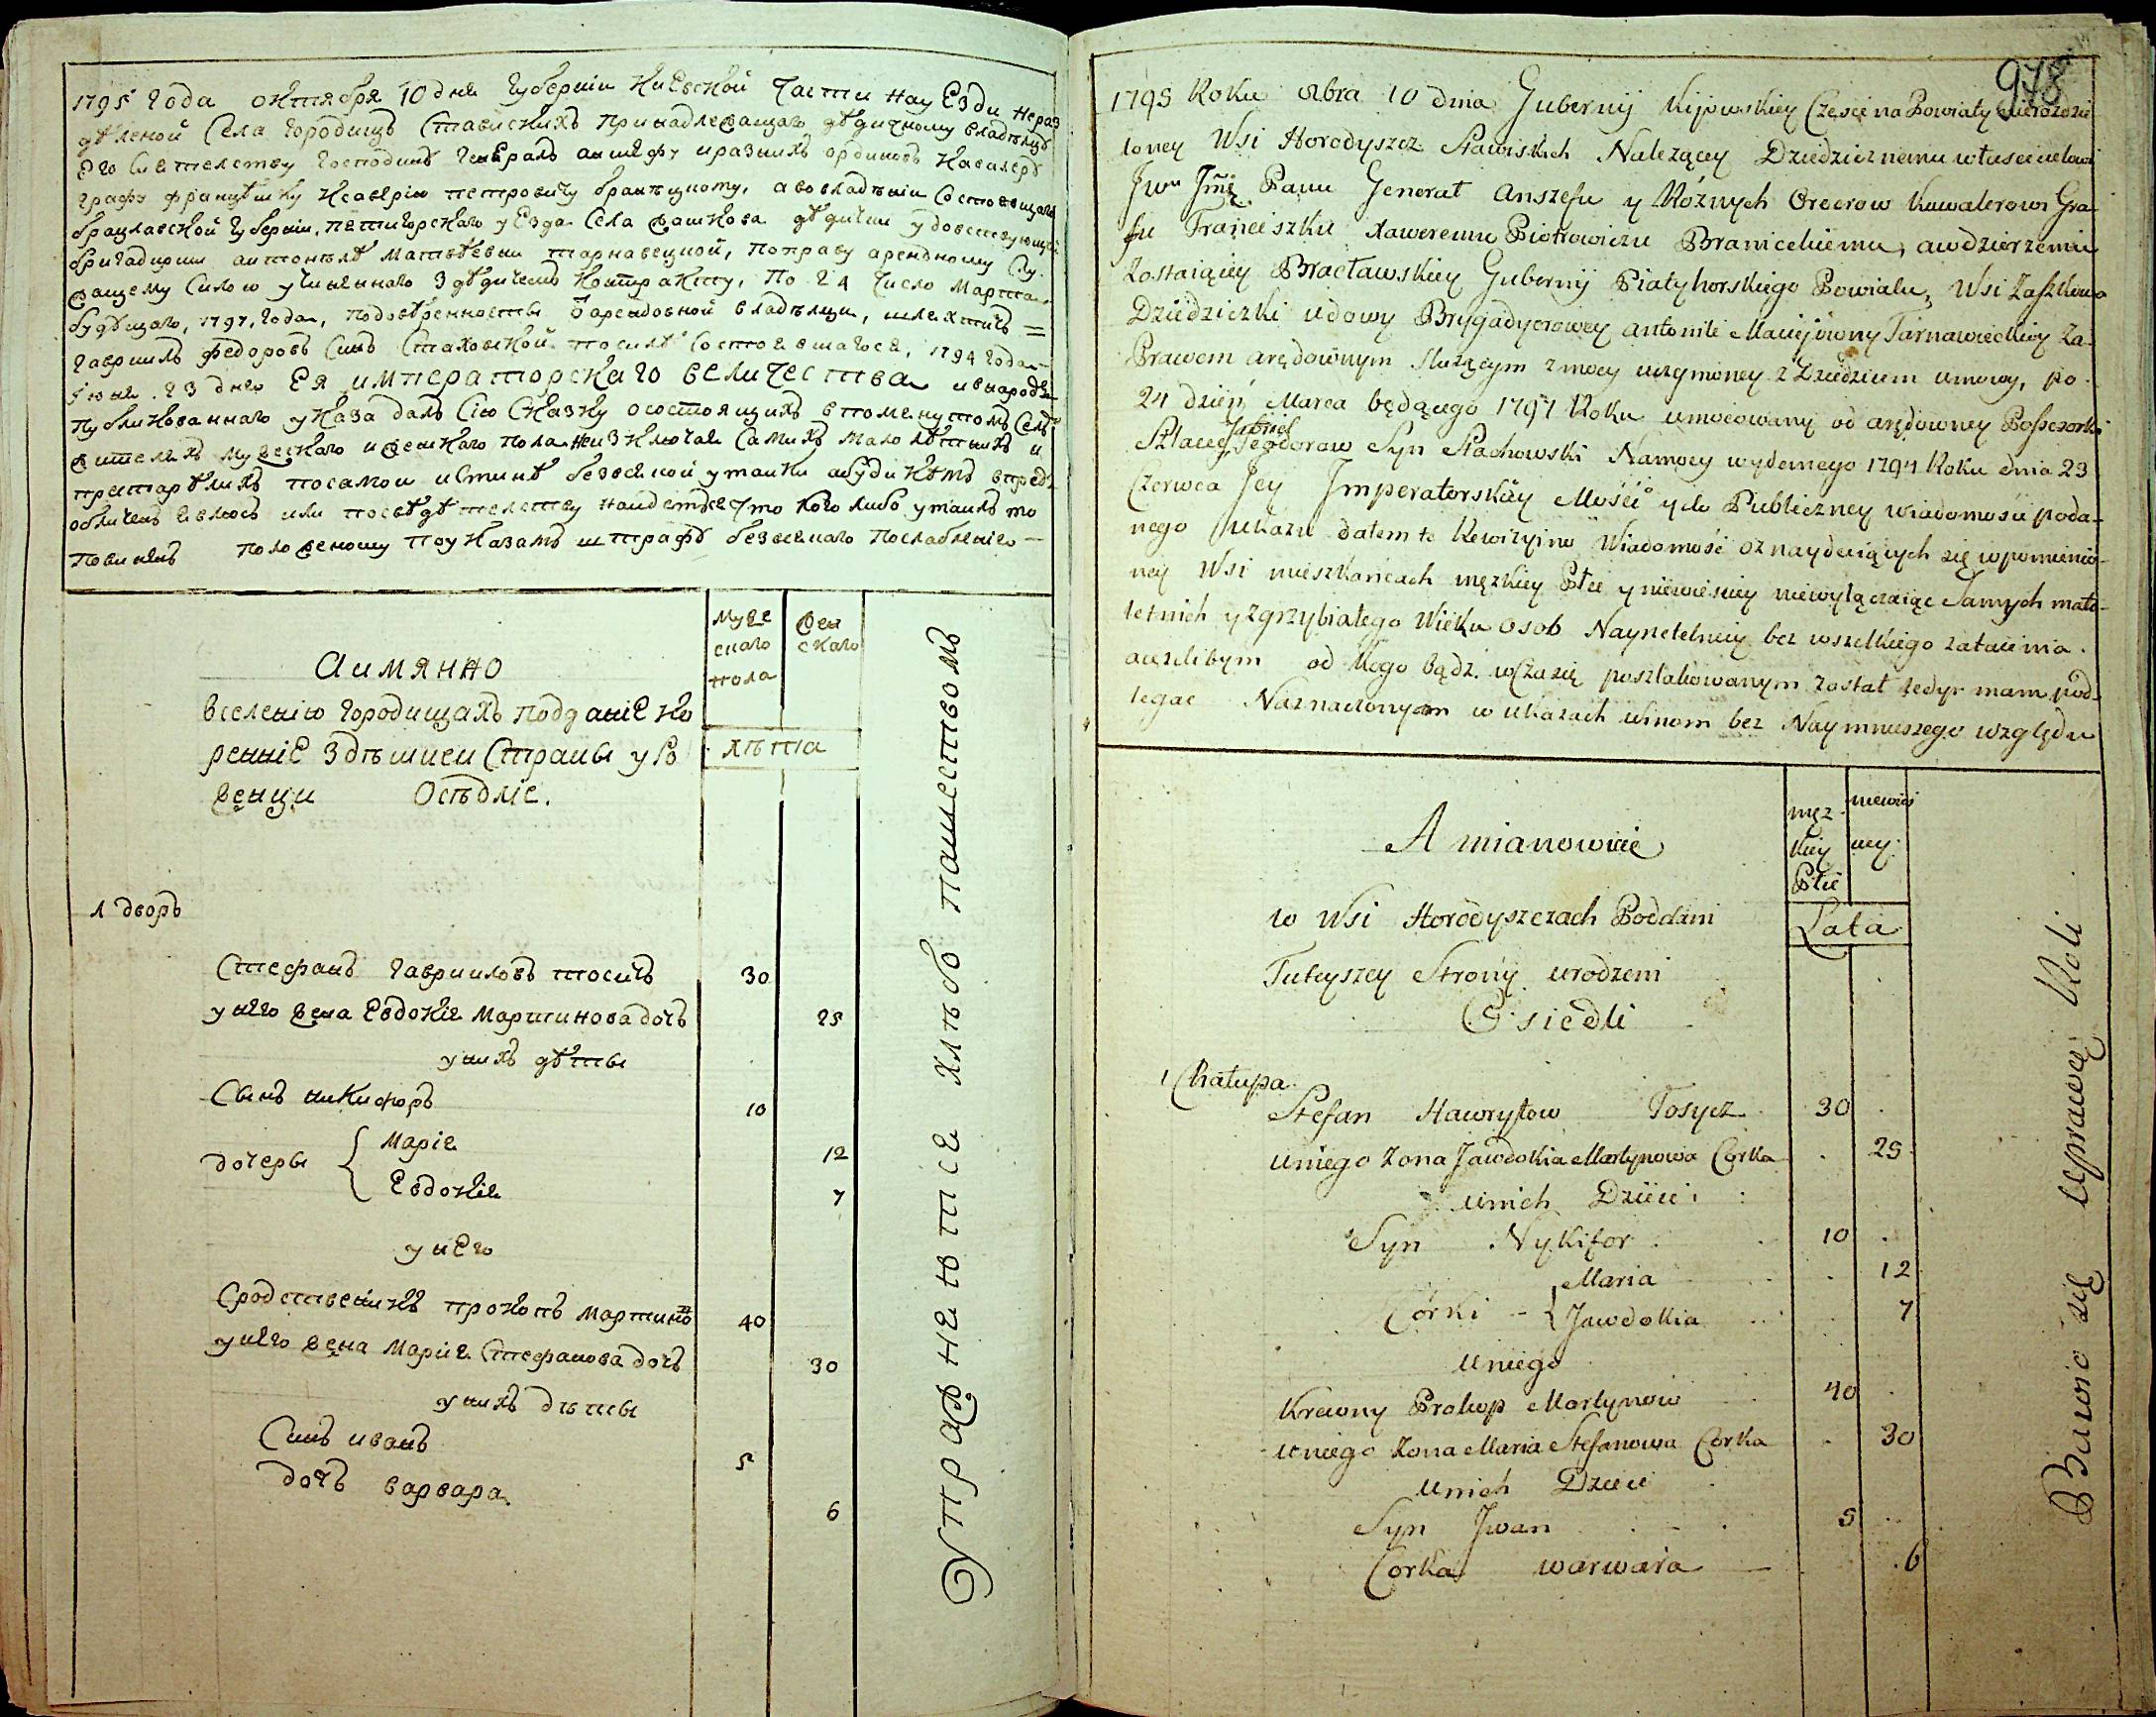 1795 года октября 10 дня Губернiи Кiевской Части на уезди нераз
дѣленой Села Городищъ Ставискихъ принадлежащаго дѣдичному владѣлцѣ
Его Сиятелству Господинѣ Генералъ аншефу и разнихъ ординовъ Кавалерѣ
графу францѣшку Ксаверiю петровичу браницкому, а во владѣнiи Состоящаго
брацлавской Губернiи, пятигорскаго уезда Села жашкова дѣдички удовствующей
бригадирши антонѣлѣ матвѣевни тарнавецкой, по праву арендному Слу
жащему Силою учиненнаго З дѣдичемъ Контрактту, по 24 Число марта
будущаго, 1797, года, по довѣренности Ѿ арендовной владѣлци, шляхтичъ =
гавриилъ федоровъ Синъ Стаховской по силѣ Состоявшагося, 1794 года
iюня 23 дня Ея императорскаго величества и в народъ
публикованнаго указа далъ Сiю Сказку о состоящихъ в помянутомъ Селѣ
жителяхъ мужескаго и женскаго пола не изключая Самихъ мало лѣтнихъ и
престарѣлихъ по самой истинѣ без всякой утайки а буди кѣмъ впредъ
обличенъ явлюсь или по свѣдѣтелству найдется что кого либо утаилъ то
повиненъ положеному по указамъ штрафѣ без всякаго послабленiя
муже
скаго
пола
жен
скаго
лѣта
А имянно
в селенiю Городищахъ подданiе ко
реннiе Здѣшнеи Страны уро
женци Осѣдлiе.
1 дворъ
Стефанъ Гаврииловъ тосичъ 30
у него жена Евдокiя мартинова дочъ 25
у нихъ дѣты
Сынъ никифоръ 10
дочеры { марiя 12
Евдокiя 7
у него
Сродственикъ прокопъ мартиновъ 40
у него жена марiя Стефанова дочъ 30
у нихъ дѣты
Синъ иванъ 5
дочъ варвара 6
Упражнеются хлѣбо пашествомъ
978
1795 Roku 8bra 10 dnia Gubernij Kijowskiey Częsci na Powiaty Nierozdzie
loney Wsi Horodyszcz Stawiskich Należącey Dziedzicznemu właścicielowi
Jwu Jmę Panu Generał Anszefu y Różnych Orderow Kawalerowi Gra
fu Franciszku Xaweremu Piotrowiczu Branickiemu, a w dzierzeniu
Zostaiącey Bracławskiey Gubernij Piatyhorskiego Powiatu, Wsi Zaszkowa
Dziedziczki udowy Brygadyerowey Antonili Maciejówny Tarnawieckiey Za
Prawem arędownym służącym z mocy uczynioney z Dziedzicem umowy, po
24 dzień Marca będącego 1797 Roku umocowany od arędowney Possesorki
Szlachcic Jabriel Teodorow Syn Stachowski Namocy wydanego 1794 Roku dnia 23
Czerwca Jey Imperatorskiey Mości y do Publiczney wiadomości poda-
nego ukazu dałem te Rewizyine Wiadomość o znayduiących się w pomienio-
ney Wsi mieszkańcach męzkiey Płci y niewiesciey niewyłączaiąc Samych mało-
letnich y zgrzybiałego Wieku Osob Nayrzetelniey bez wszelkiego zataienia
a ieżelibym od Kogo bądź w Czasie poszlakowanym został tedy mam pod-
legac Naznaczonym w ukazach winom bez Naymnieszego względu
męz-
kiey
Płci
niewieś
ciey
Lata
A mianowicie
w Wsi Horodyszczach Poddani
Tuteyszey Strony urodzeni
Osiedli
1 Chałupa
Stefan Hawryłow Tosycz 30
uniego Zona Jawdokia Martynowa Corka 25
unich Dzieci
Syn Nykifor 10
Córki { Maria 12
Jawdokia 7
uniego
Krewny Prokop Martynow 40
uniego Zona Maria Stefanowa Corka 30
unich Dzieci
Syn Jwan 5
Corka warwara 6
Bawio się uprawę Roli